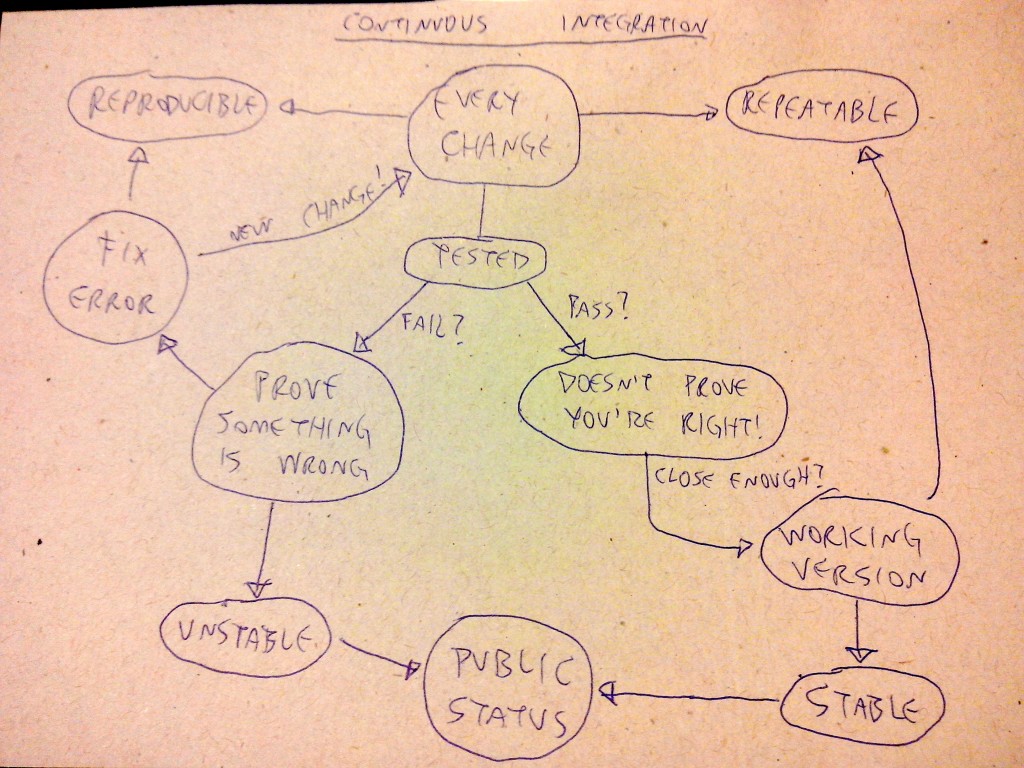 CONTINUOUS INTEGRATION
REPRODUCIBLE
EVERY
CHANGE
REPEATABLE
NEW CHANGE!
FIX
ERROR
TESTED
FAIL?
PASS?
PROVE
SOMETHING
IS WRONG
DOESN'T PROVE
YOU'RE RIGHT!
CLOSE ENOUGH?
WORKING
VERSION
UNSTABLE
PUBLIC
STATUS
STABLE